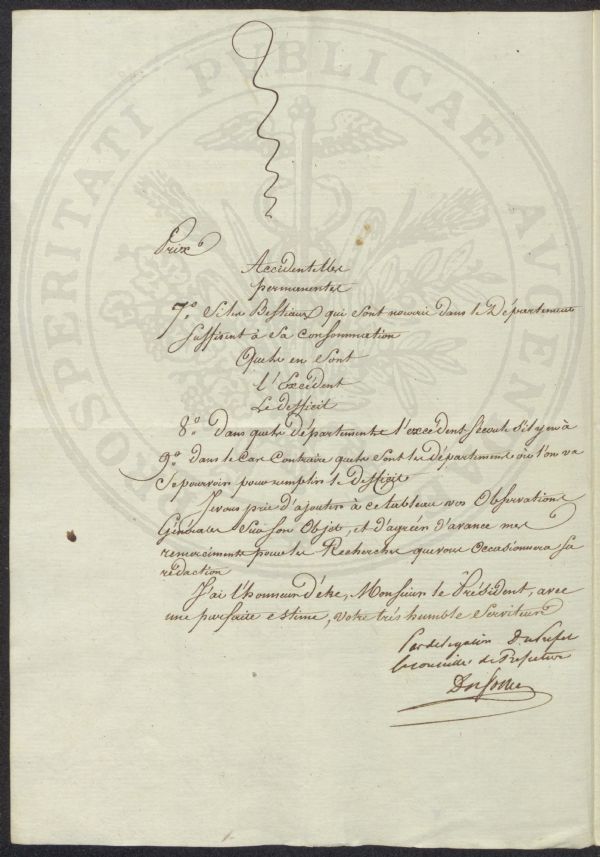 PROSPERITATI PUBLICAE AUGENDAE
Prix
Accidentelles
permanentes
7.º Si les Bestiaux qui sont nourris dans le Département
Suffisent à Sa Consommation
Quels en Sont
l'Excédent
Le defficit
8.º Dans quels départements l'excédent s'écoule s'il y en à
9.º dans le Cas Contraire quels sont les départements où l'on va
Se pourvoir pour remplir le defficit
Je vous prie d'ajouter à ce tableau vos Observations
Générales Sur Son Objet, et d'agréer d'avance mes
remerciments pour les Recherches que vous Occasionnera Sa
rédaction
J'ai l'honneur d'être, Monsieur le Président, avec
une parfaite estime, votre très humble Serviteur
Par délégation Du Prefet
le conseiller de Prefecture